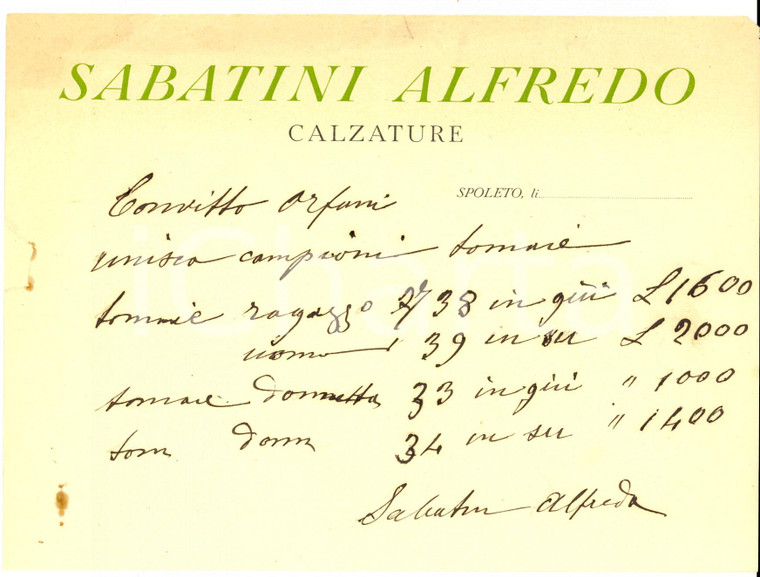 SABATINI ALFREDO
CALZATURE
SPOLETO, li
Convitto Orfani
unisco campioni tomaie
tomaie ragazzo 38 in giù £ 1600
uomo 39 in su £ 2000
tomaie donnetta 33 in giù " 1000
tom donn 34 in su " 1400
Sabatin Alfredo